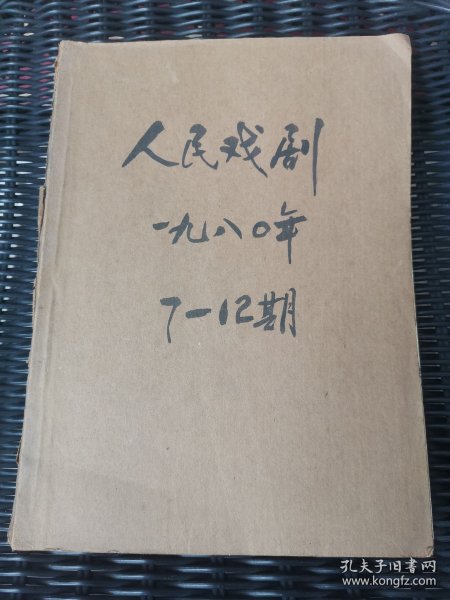 人民戏剧
一九八〇年
7—12期
孔夫子旧书网
www.kongfz.com